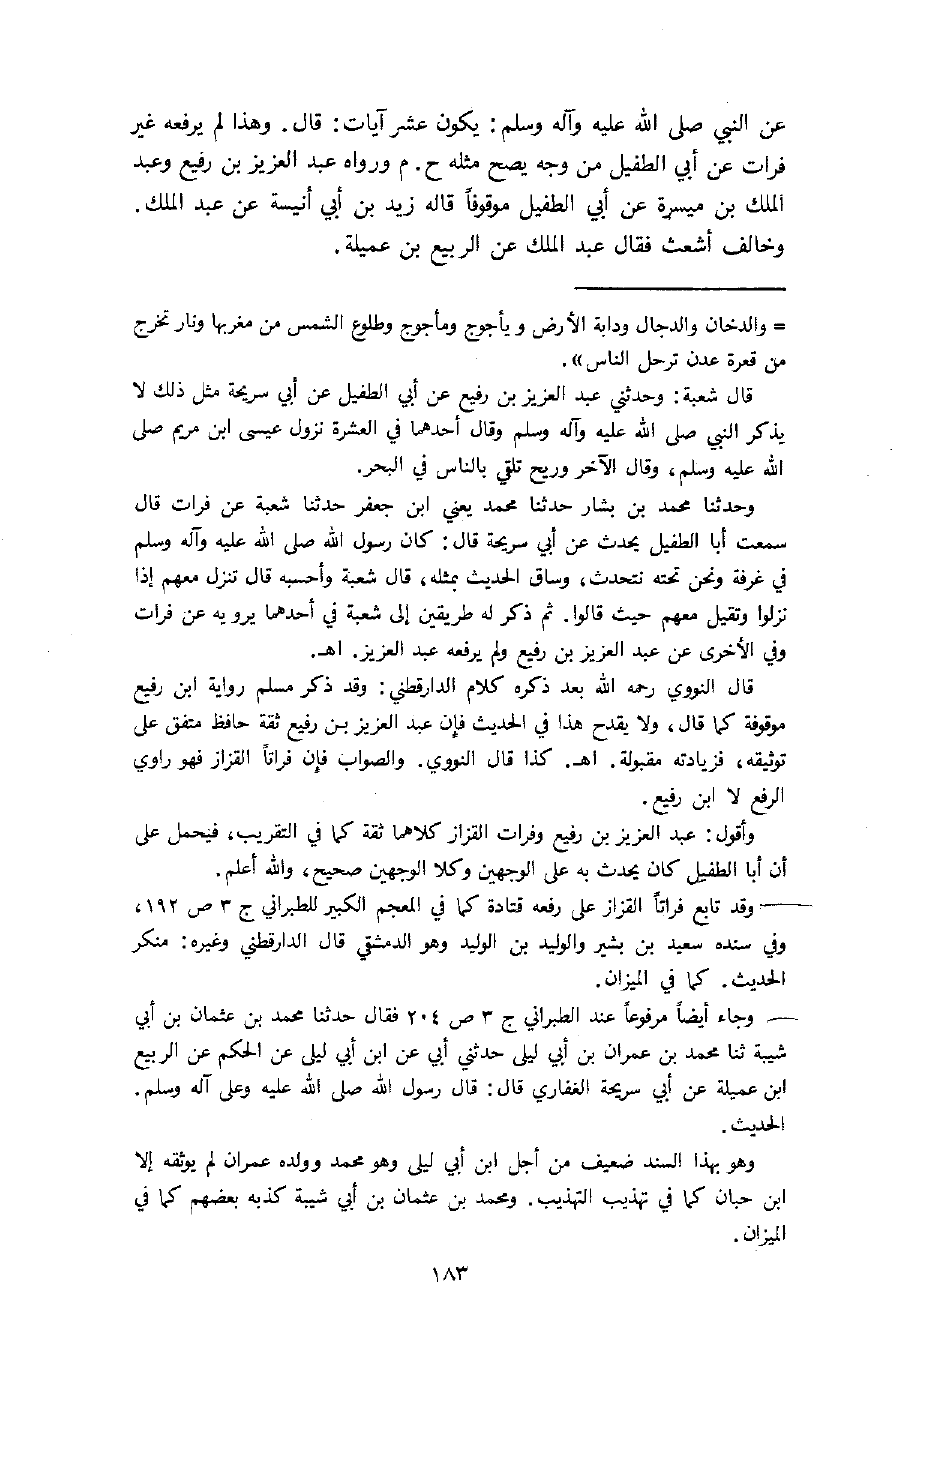 عن النبي صلى الله عليه وآله وسلم: يكون عشر آيات: قال. وهذا لم يرفعه غير
فرات عن أبي الطفيل من وجه يصح مثله ح. م ورواه عبد العزيز بن رفيع وعبد
الملك بن ميسرة عن أبي الطفيل موقوفاً قاله زيد بن أبي أنيسة عن عبد الملك.
وخالف أشعث فقال عبد الملك عن الربيع بن عميلة.
= والدخان والدجال ودابة الأرض ويأجوج ومأجوج وطلوع الشمس من مغربها ونار تخرج
من قعرة عدن ترحل الناس».
قال شعبة: وحدثني عبد العزيز بن رفيع عن أبي الطفيل عن أبي سريحة مثل ذلك لا
يذكر النبي صلى الله عليه وآله وسلم وقال أحدهما في العشرة نزول عيسى ابن مريم صلى
الله عليه وسلم، وقال الآخر وريح تلقي بالناس في البحر.
وحدثنا محمد بن بشار حدثنا محمد يعني ابن جعفر حدثنا شعبة عن فرات قال
سمعت أبا الطفيل يحدث عن أبي سريحة قال: كان رسول الله صلى الله عليه وآله وسلم
في غرفة ونحن تحته نتحدث، وساق الحديث بمثله، قال شعبة وأحسبه قال تنزل معهم إذا
نزلوا وتقيل معهم حيث قالوا. ثم ذكر له طريقين إلى شعبة في أحدهما يرويه عن فرات
وفي الأخرى عن عبد العزيز بن رفيع ولم يرفعه عبد العزيز. اهـ.
قال النووي رحمه الله بعد ذكره كلام الدارقطني: وقد ذكر مسلم رواية ابن رفيع
موقوفة كما قال، ولا يقدح هذا في الحديث فإن عبد العزيز بن رفيع ثقة حافظ متفق على
توثيقه، فزيادته مقبولة. اهـ. كذا قال النووي. والصواب فإن فراتاً القزاز فهو راوي
الرفع لا ابن رفيع.
وأقول: عبد العزيز بن رفيع وفرات القزاز كلاهما ثقة كما في التقريب، فيحمل على
أن أبا الطفيل كان يحدث به على الوجهين وكلا الوجهين صحيح، والله أعلم.
— وقد تابع فراتاً القزاز على رفعه قتادة كما في المعجم الكبير للطبراني ج ٣ ص ١٩٢،
وفي سنده سعيد بن بشير والوليد بن الوليد وهو الدمشقي قال الدارقطني وغيره: منكر
الحديث. كما في الميزان.
— وجاء أيضاً مرفوعاً عند الطبراني ج ٣ ص ٢٠٤ فقال حدثنا محمد بن عثمان بن أبي
شيبة ثنا محمد بن عمران بن أبي ليلى حدثني أبي عن ابن أبي ليلى عن الحكم عن الربيع
ابن عميلة عن أبي سريحة الغفاري قال: قال رسول الله صلى الله عليه وعلى آله وسلم.
الحديث.
وهو بهذا السند ضعيف من أجل ابن أبي ليلى وهو محمد وولده عمران لم يوثقه إلا
ابن حبان كما في تهذيب التهذيب. ومحمد بن عثمان بن أبي شيبة كذبه بعضهم كما في
الميزان.
١٨٣